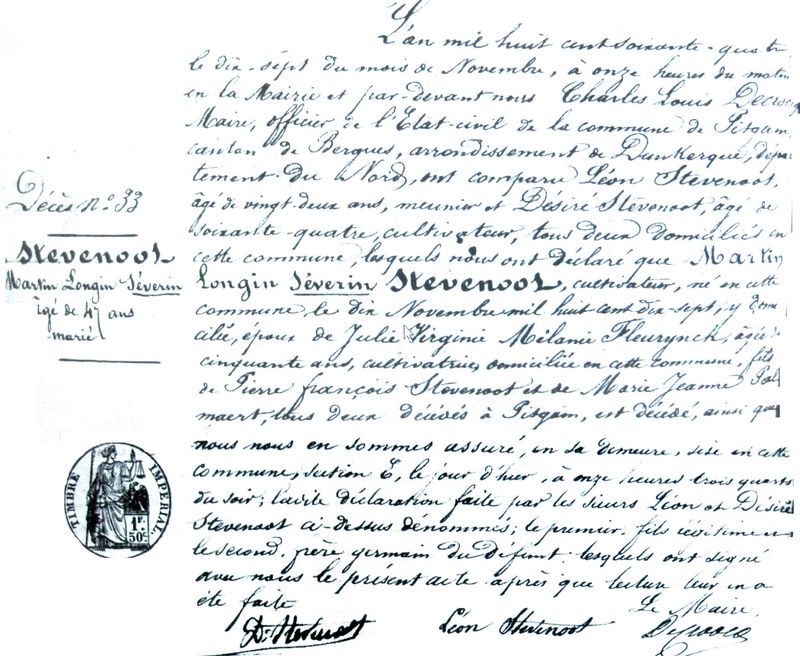 L'an mil huit cent soixante-quatre
le dix-sept du mois de Novembre, à onze heures du matin
en la Mairie et par-devant nous Charles Louis
Maire, officier de l'Etat-civil de la commune de Pitgam,
canton de Bergues, arrondissement de Dunkerque, dépar-
tement du Nord, ont comparu Léon Stevenoot,
âgé de vingt deux ans, meunier et Désiré Stevenoot, âgé de
soixante-quatre, cultivateur, tous deux domiciliés en
cette commune, lesquels nous ont déclaré que Martin
Longin Séverin Stevenoot, cultivateur, né en cette
commune, le dix Novembre mil huit cent dix-sept, y domi-
cilié, époux de Julie Virginie Mélanie Fleurynck, âgée
cinquante ans, cultivatrice, domiciliée en cette commune, fils
de Pierre François Stevenoot et de Marie Jeanne
maert, tous deux décédés à Pitgam, est décédé, ainsi que
nous nous en sommes assuré, en sa demeure, sise en cette
commune, section E, le jour d'hier, à onze heures trois quarts
du soir; ladite déclaration faite par les sieurs Léon et Désiré
Stevenoot ci-dessus dénommés; le premier, fils légitime et
le second, frère germain du Défunt lesquels ont signé
avec nous le présent acte après que lecture leur en a
été faite
Le Maire,
D. Stevenoot Léon Stevenoot
Décès n° 33
Stevenoot
Martin Longin Séverin
âgé de 47 ans
marié
TIMBRE IMPERIAL
1F.
50c